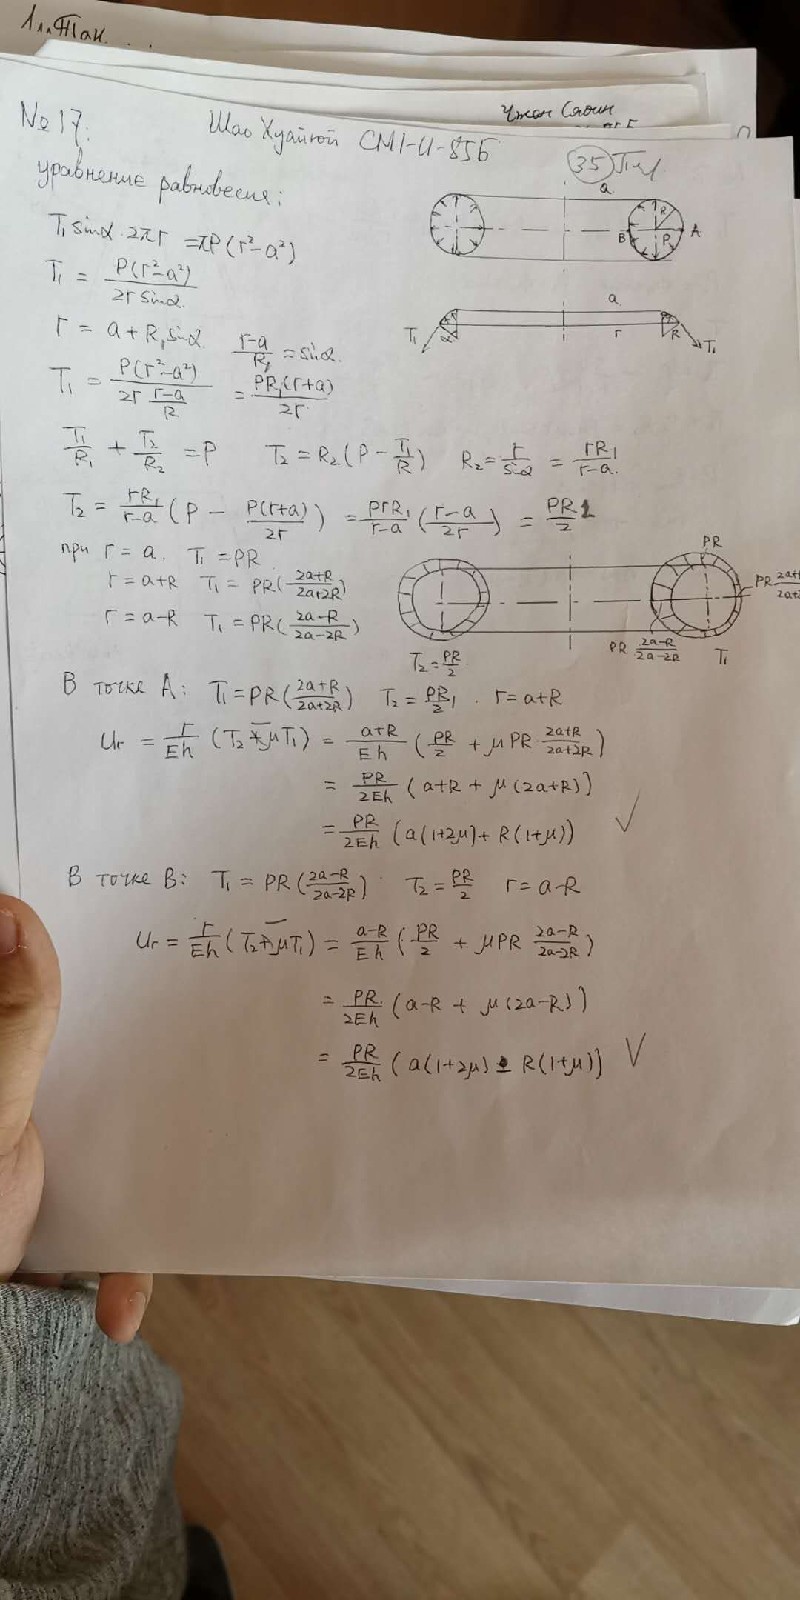 №17.
Шао Хуайюй СМ1-И-85Б
35
уравнение равновесия:
T₁ sinα · 2πr = πP(r²-a²)
T₁ = P(r²-a²) / 2r sinα
r = a + R₁ sinα (r-a)/R₁ = sinα
T₁ = P(r²-a²) / (2r (r-a)/R) = PR₁(r+a) / 2r
T₁/R₁ + T₂/R₂ = P T₂ = R₂(P - T₁/R) R₂ = r/sinα = rR₁/(r-a)
T₂ = rR₁/(r-a) (P - P(r+a)/2r) = PrR₁/(r-a) ((r-a)/2r) = PR1/2
при r = a T₁ = PR
r = a+R T₁ = PR((2a+R)/(2a+2R))
r = a-R T₁ = PR((2a-R)/(2a-2R))
a
R
B
P
A
a
T₁
α
r
R
T₁
PR
PR (2a-R)/(2a-2R)
T₂ = PR/2
T₁
В точке A: T₁ = PR((2a+R)/(2a+2R)) T₂ = PR₁/2 . r = a+R
= (a+R)/Eh (PR/2 + μPR (2a+R)/(2a+2R))
= PR/2Eh (a+R + μ(2a+R))
= PR/2Eh (a(1+2μ) + R(1+μ)) ✓
В точке B: T₁ = PR((2a-R)/(2a-2R)) T₂ = PR/2 r = a-R
= (a-R)/Eh (PR/2 + μPR (2a-R)/(2a-2R))
= PR/2Eh (a-R + μ(2a-R))
= PR/2Eh (a(1+2μ) - R(1+μ)) ✓